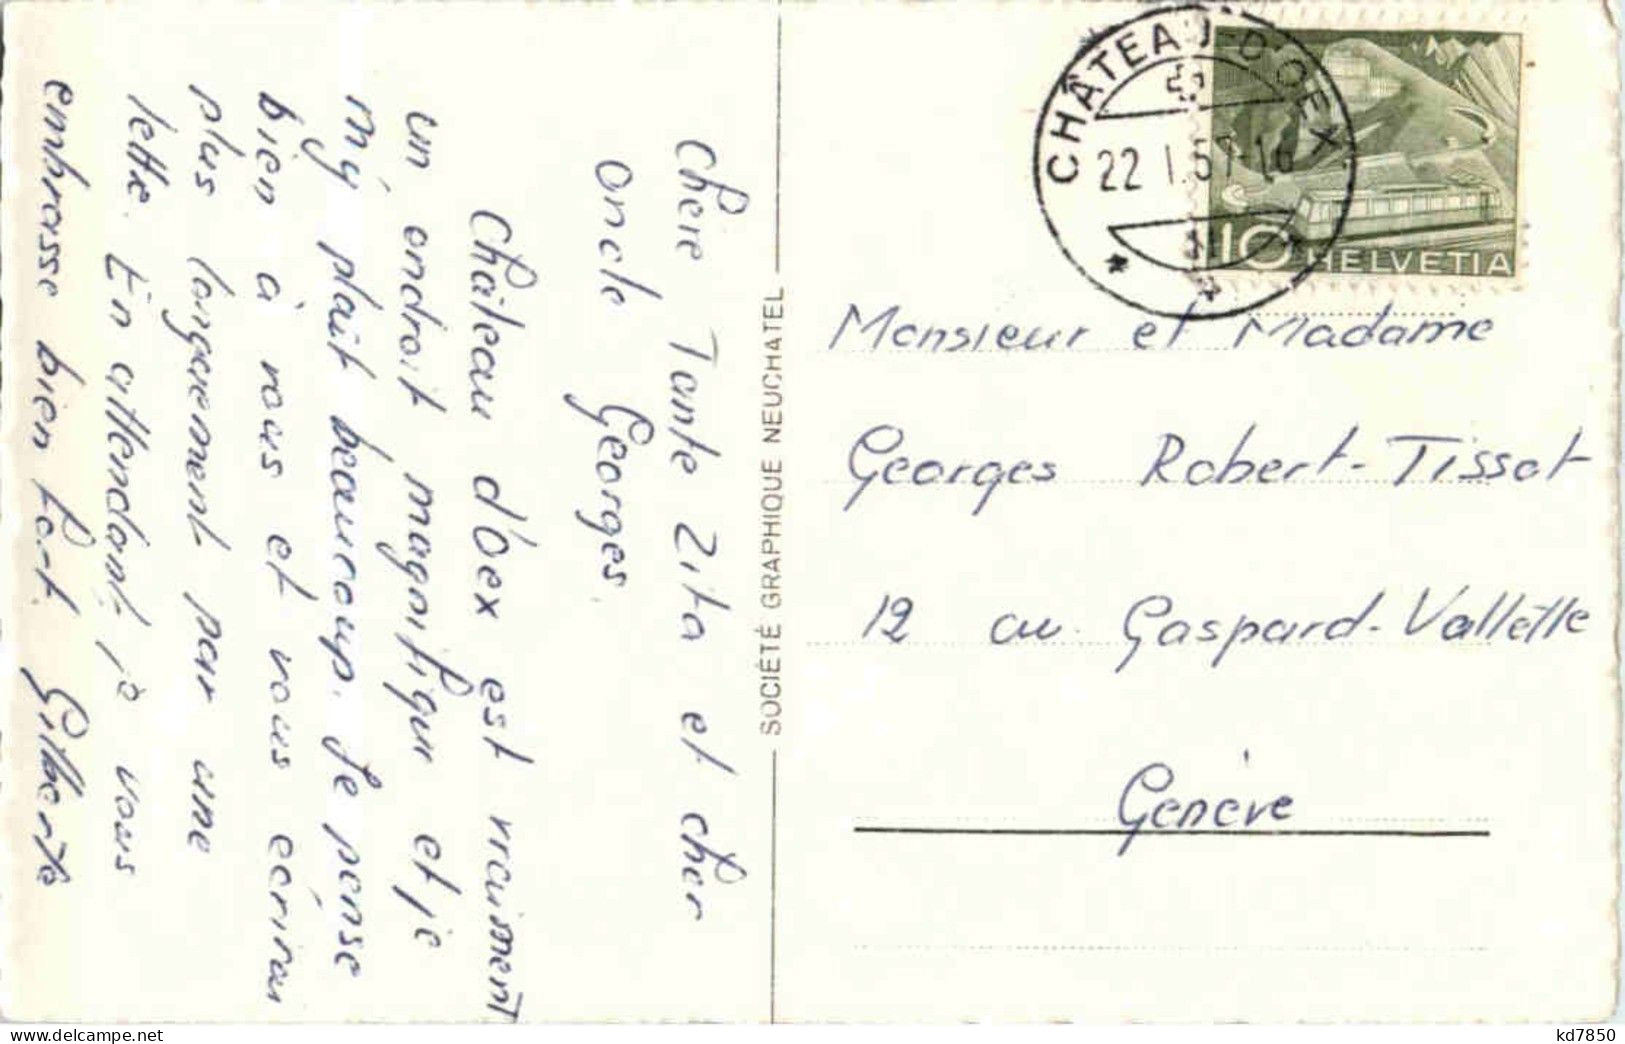 Chère Tante Zita et cher
oncle Georges.
Château d'Oex est vraiment
un endroit magnifique et je
m'y plaît beaucoup. Je pense
bien à vous et vous écrirai
plus longuement par une
lettre. En attendant, je vous
embrasse bien fort. Gilberte
SOCIÉTÉ GRAPHIQUE NEUCHATEL
CHÂTEAU-D'OEX
22 I. 57-16
10 HELVETIA
Monsieur et Madame
Georges Robert-Tissot
12 av. Gaspard-Vallette
Genève
kd7850